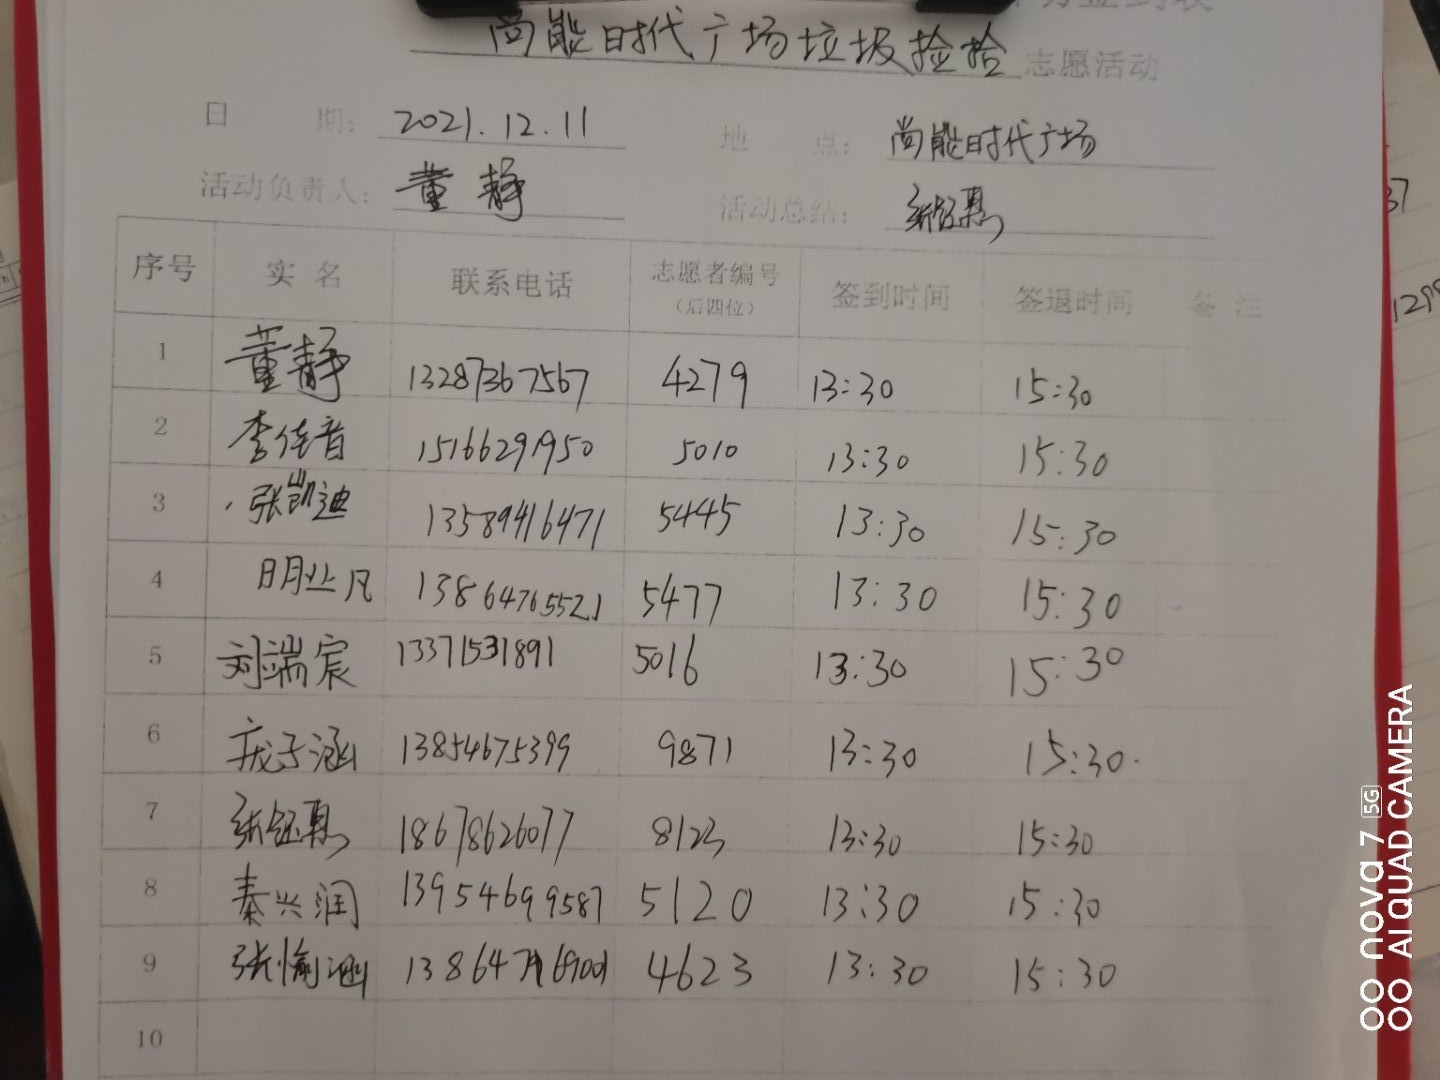 尚能时代广场垃圾捡拾志愿活动
日 期: 2021.12.11 地 点: 尚能时代广场
活动负责人: 董静 活动总结: 张钰惠
序号 实名 联系电话 志愿者编号 签到时间 签退时间 备注
(后四位)
1 董静 13287367567 4279 13:30 15:30
2 李佳音 15166291950 5010 13:30 15:30
3 张凯迪 13589416471 5445 13:30 15:30
4 13864765521 5477 13:30 15:30
5 刘端宸 13371531891 5016 13:30 15:30
6 庞子涵 13854675399 9871 13:30 15:30
7 张钰惠 18678626077 8123 13:30 15:30
8 秦兴润 13954699587 5120 13:30 15:30
9 张愉涵 4623 13:30 15:30
10
37
nova 7 5G
AI QUAD CAMERA